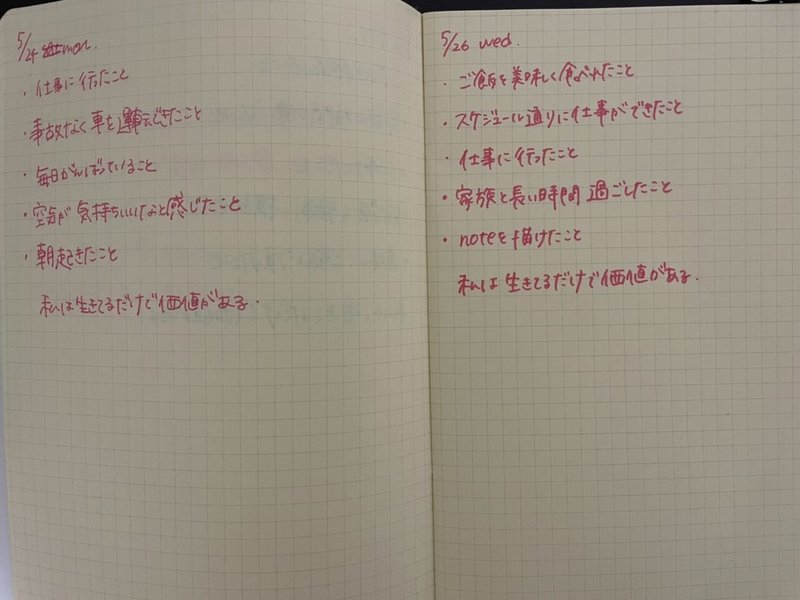 5/24 mon.
・仕事に行ったこと
・事故なく車を運転できたこと
・毎日がんばっていること
・空気が気持ちいいなと感じたこと
・朝起きたこと
私は生きてるだけで価値がある.
5/26 wed.
・ご飯を美味しく食べれたこと
・スケジュール通りに仕事ができたこと
・仕事に行ったこと
・家族と長い時間過ごしたこと
・noteを描けたこと
私は生きてるだけで価値がある.